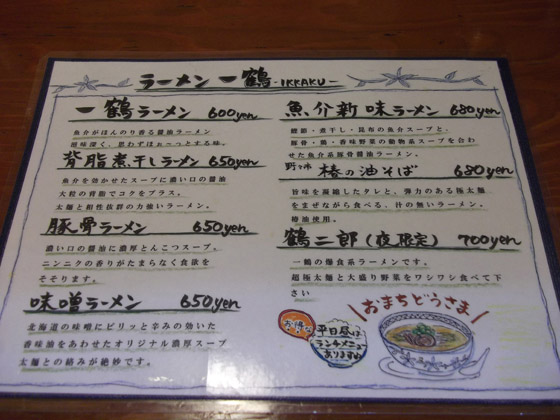 ラーメン 一鶴 -IKKAKU-
一鶴ラーメン 600yen
魚介がほんのり香る醤油ラーメン
滋味深く、思わずほぉ～っとする味。
背脂煮干しラーメン 650yen
魚介を効かせたスープに濃い口の醤油
大粒の背脂でコクをプラス。
太麺と相性抜群の力強いラーメン。
豚骨ラーメン 650yen
濃い口の醤油に濃厚とんこつスープ。
ニンニクの香りがたまらなく食欲を
そそります。
味噌ラーメン 650yen
北海道の味噌にピリッと辛みの効いた
香味油をあわせたオリジナル濃厚スープ
太麺との絡みが絶妙です。
魚介新味ラーメン 680yen
鰹節・煮干し・昆布の魚介スープと、
豚骨・鶏・香味野菜の動物系スープを合わ
せた魚介系豚骨醤油ラーメン。
野々市 椿の油そば 680yen
旨味を凝縮したタレと、弾力のある極太麺
をまぜながら食べる、汁の無いラーメン。
椿油使用。
鶴二郎(夜限定) 700yen
一鶴の爆食系ラーメンです。
超極太麺と大盛り野菜をワシワシ食べて下
さい
おまちどうさま
お得な
平日昼は、
ランチメニュー
あります